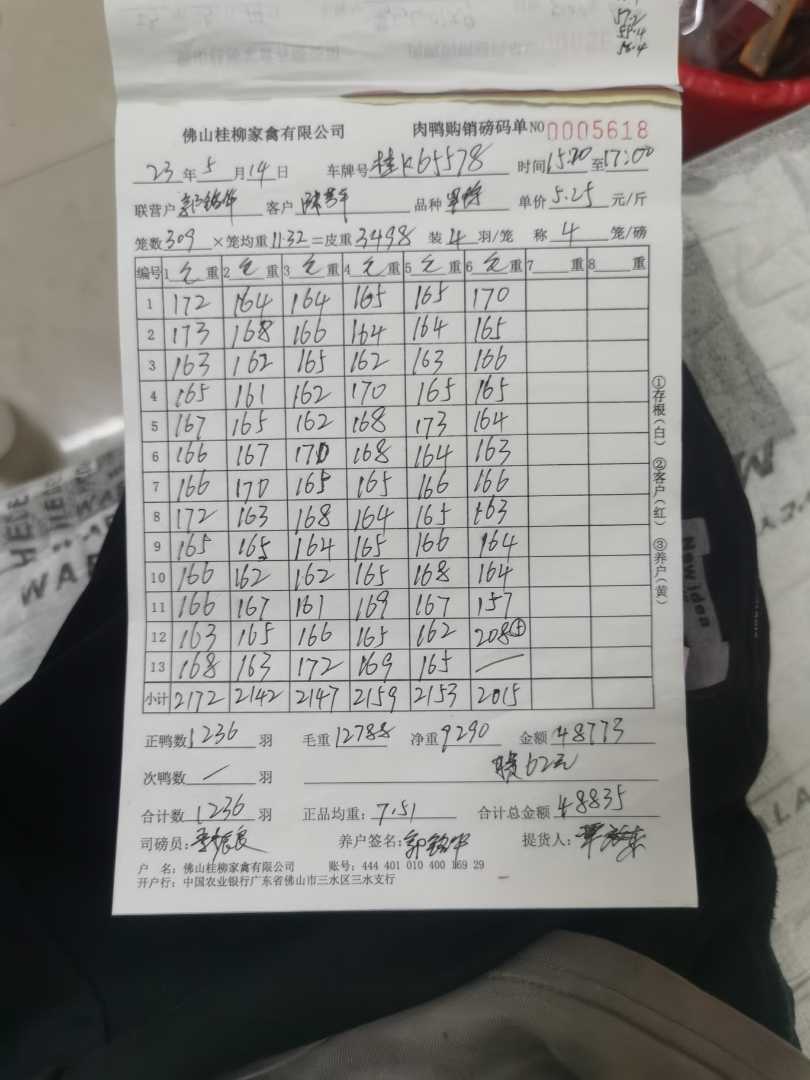 57.2
58.4
58.4
佛山桂柳家禽有限公司 肉鸭购销磅码单 NO 0005618
23年5月14日 车牌号桂K65578 时间15:20至17:00
联营户郭铭华 客户 品种 单价5.25元/斤
笼数309×笼均重11.32=皮重3498 装4羽/笼 称4笼/磅
编号 1毛重 2毛重 3毛重 4毛重 5毛重 6毛重 7重 8重
1 172 164 164 165 165 170
2 173 168 166 164 164 165
3 163 162 165 162 163 166
4 165 161 162 170 165 165
5 167 165 162 168 173 164
6 166 167 170 168 164 163
7 166 170 165 165 166 166
8 172 163 168 164 165 163
9 165 165 164 165 166 164
10 166 162 162 165 168 164
11 166 167 161 169 167 157
12 163 165 166 165 162 208⑤
13 168 163 172 169 165 —
小计 2172 2142 2147 2159 2153 2015
正鸭数1236羽 毛重12788 净重9290 金额48773
次鸭数/羽 62元
合计数1236羽 正品均重:7.51 合计总金额48835
司磅员: 养户签名:郭铭华 提货人:
户 名:佛山桂柳家禽有限公司 账号:444 401 010 400 169 29
开户行:中国农业银行广东省佛山市三水区三水支行
①存根(白) ②客户(红) ③养户(黄)
New idea
HERE
WAR